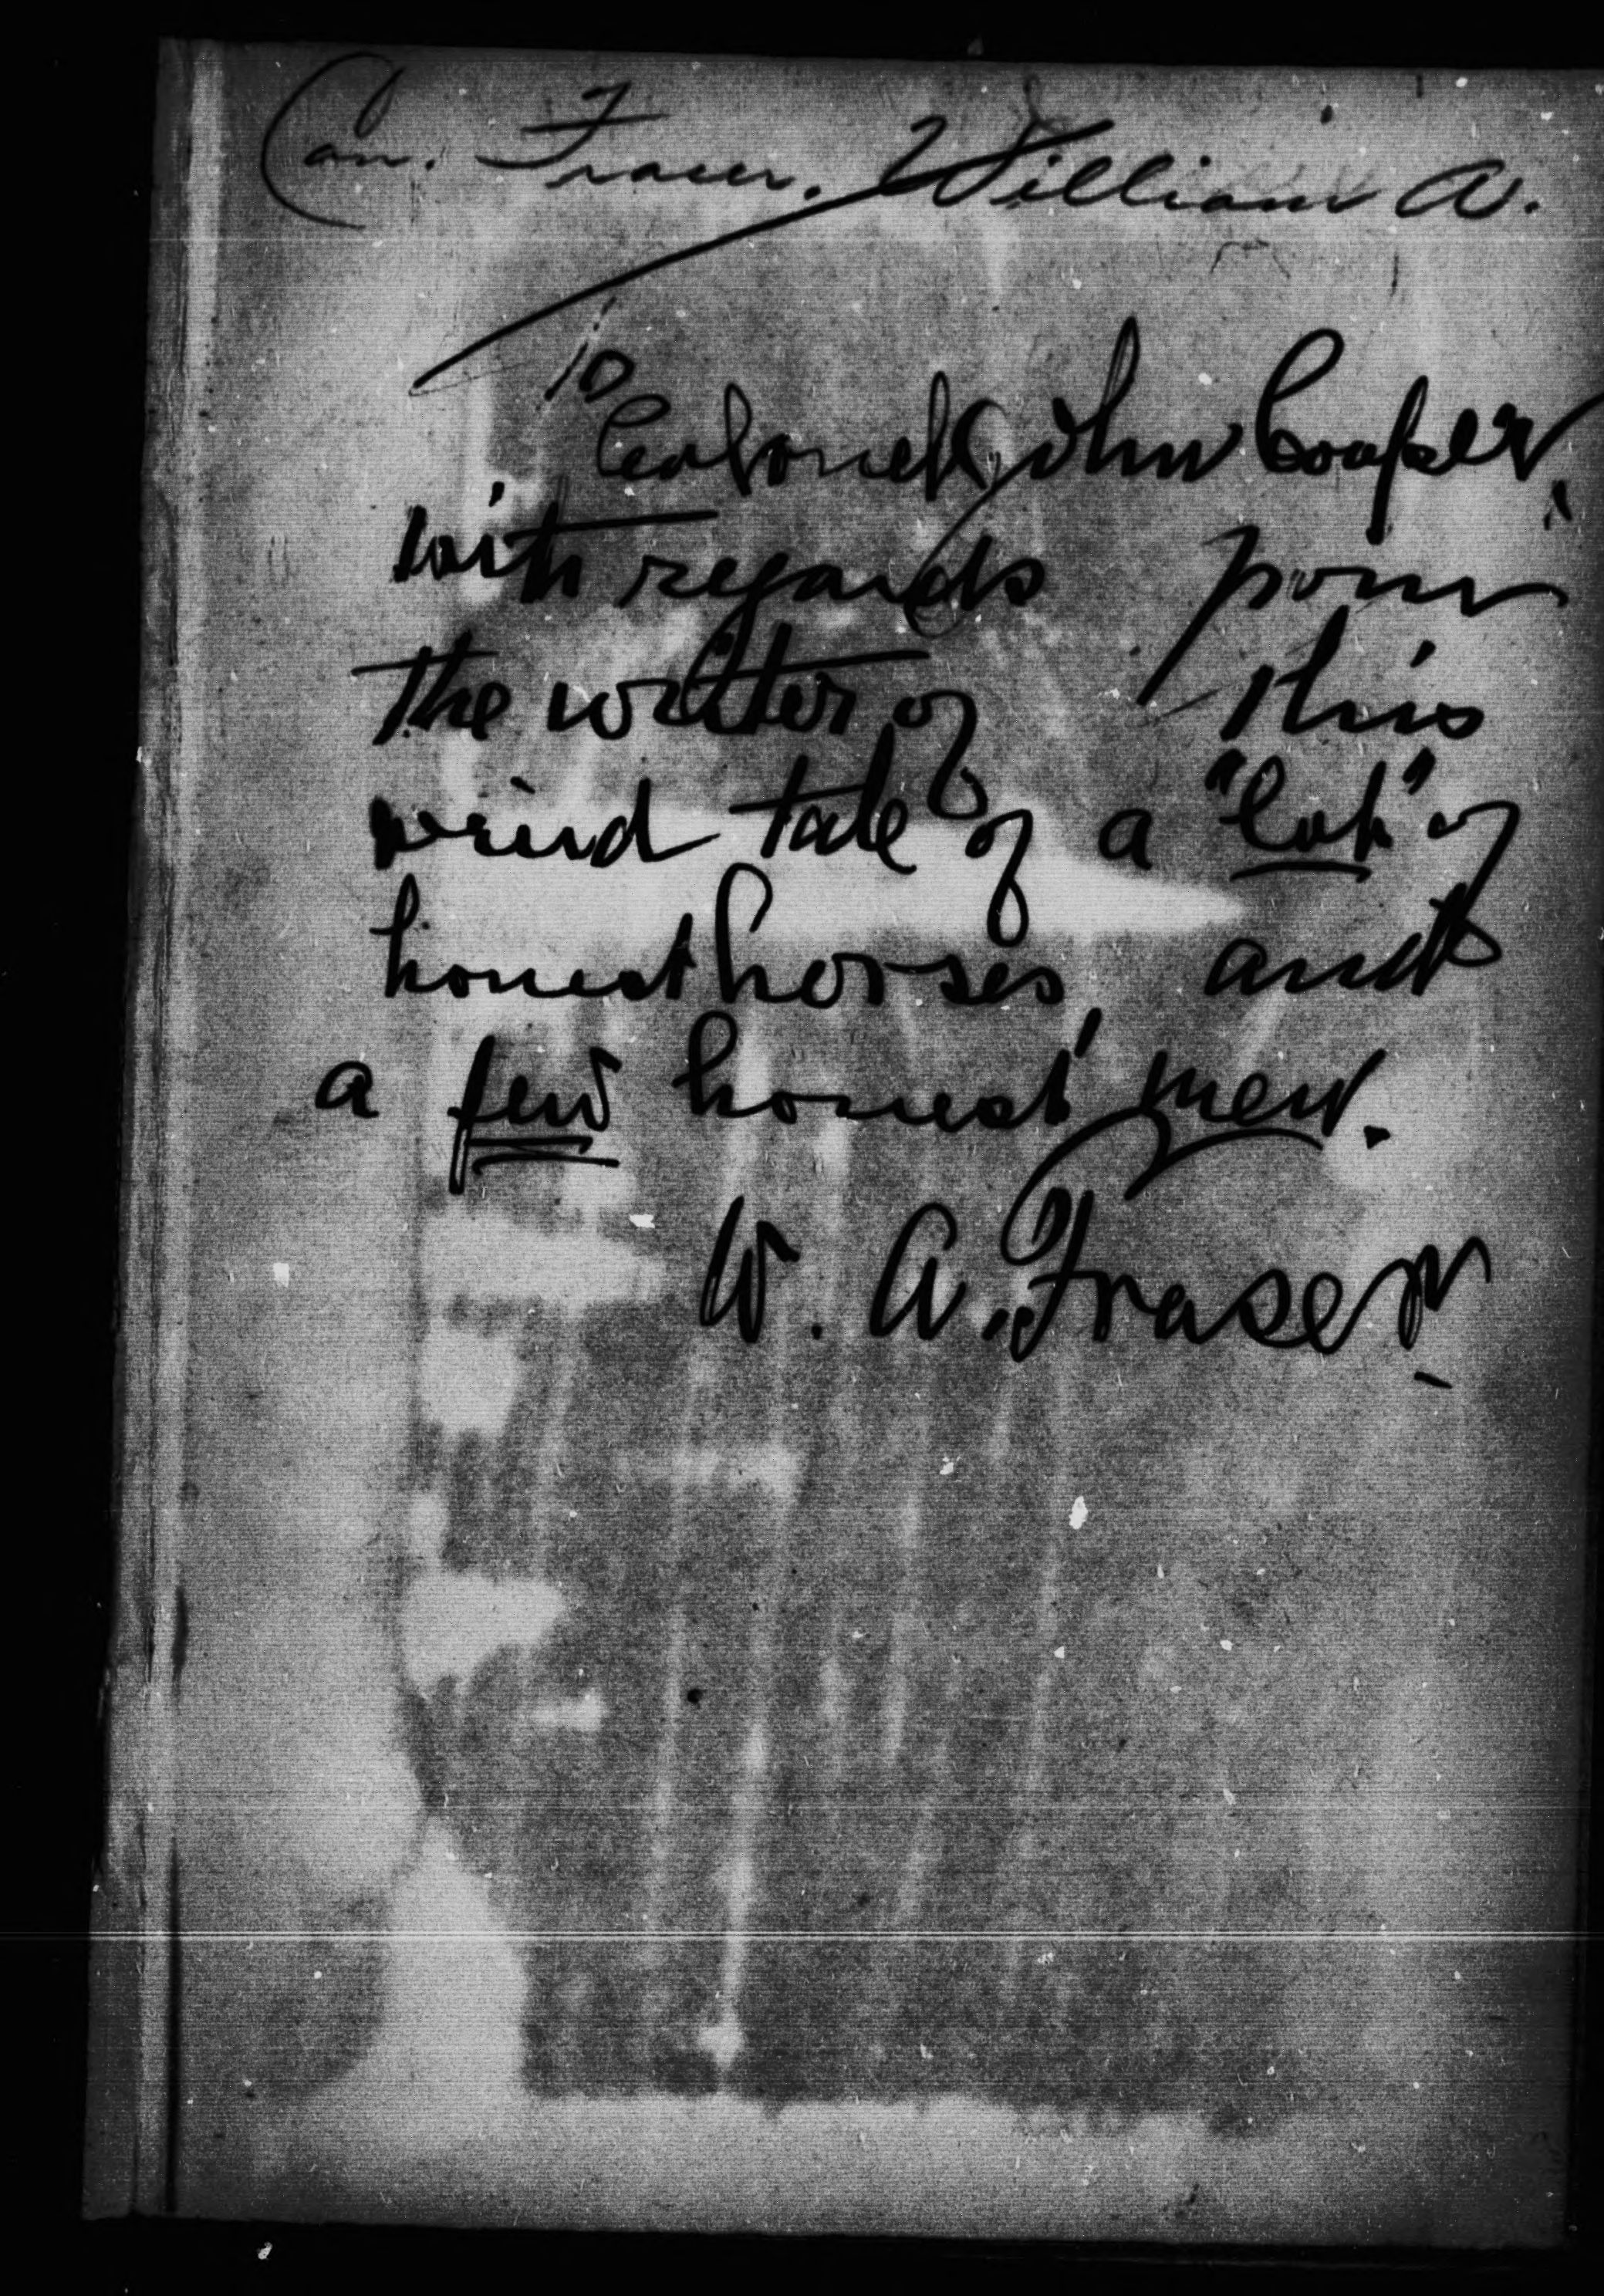 Can. Fraser. William A.
To
Colonel John Cooper,
with regards from
the writer of this
weird tale of a "lot" of
honest horses, and
a few honest men.
W. A. Fraser